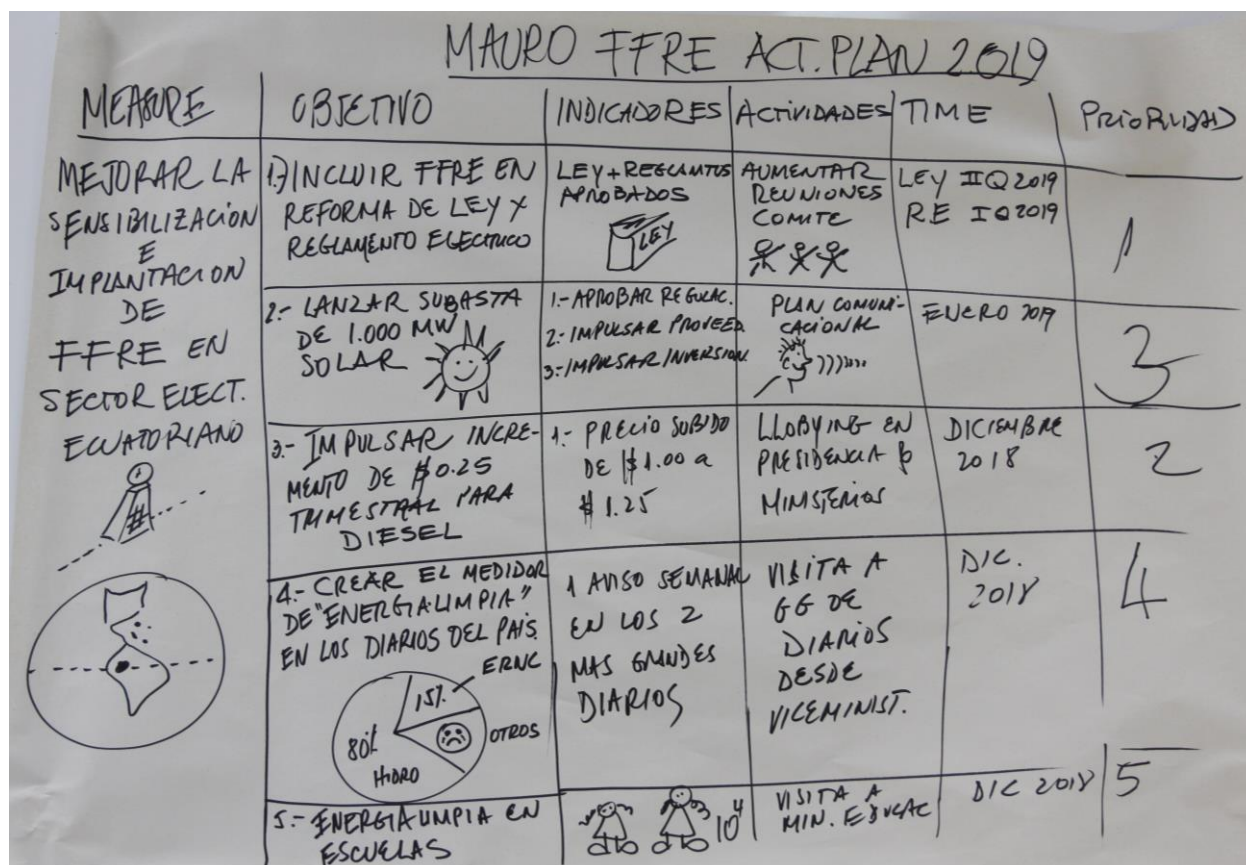 MAURO FFRE ACT. PLAN 2019
MEASURE
OBJETIVO
INDICADORES
ACTIVIDADES
TIME
PRIORIDAD
MEJORAR LA
SENSIBILIZACIÓN
E
IMPLANTACION
DE
FFRE EN
SECTOR ELECT.
ECUATORIANO
1.) INCLUIR FFRE EN
REFORMA DE LEY Y
REGLAMENTO ELECTRICO
LEY + REGLAMTOS
APROBADOS
LEY
AUMENTAR
REUNIONES
COMITE
LEY IIQ 2019
RE IQ 2019
1
2.- LANZAR SUBASTA
DE 1.000 MW
SOLAR
1.- APROBAR REGULAC.
2.- IMPULSAR PROVEED
3.- IMPULSAR INVERSION
PLAN COMUNI-
CACIONAL
ENERO 2019
3
3.- IMPULSAR INCRE-
MENTO DE $0.25
TRIMESTRAL PARA
DIESEL
1.- PRECIO SUBIDO
DE $1.00 a
$1.25
LLOBYING EN
PRESIDENCIA
MINISTERIOS
DICIEMBRE
2018
2
4.- CREAR EL MEDIDOR
DE "ENERGIA LIMPIA"
EN LOS DIARIOS DEL PAÍS.
ERNC
15%
80%
HIDRO
OTROS
1 AVISO SEMANAL
EN LOS 2
MAS GRANDES
DIARIOS
VISITA A
GG DE
DIARIOS
DESDE
VICEMINIST.
DIC.
2018
4
5.- ENERGIA LIMPIA EN
ESCUELAS
10⁴
VISITA A
MIN. EDUCAC
DIC 2018
5